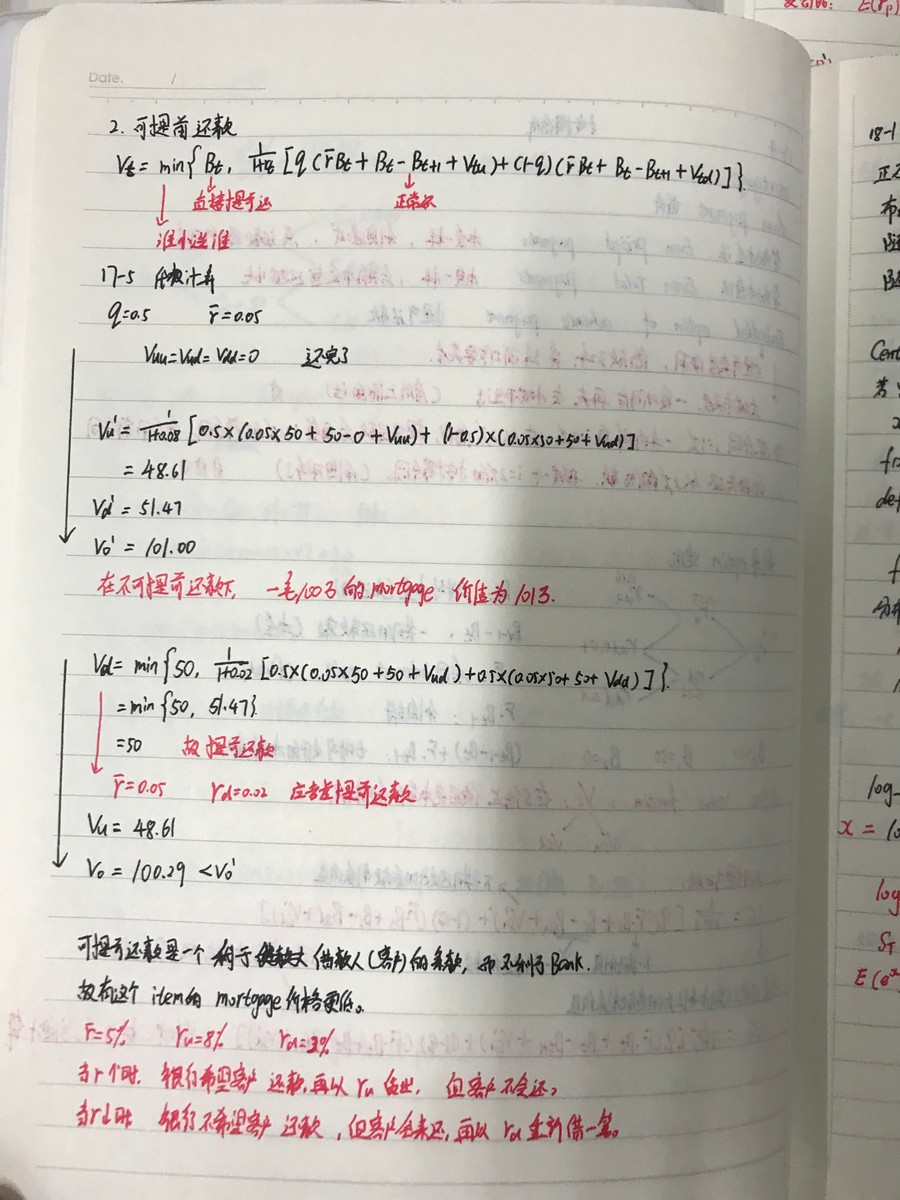 Date. /
2. 可提前还款
Vt = min{ Bt, 1/(1+rt) [q (r̄Bt + Bt - Bt+1 + Vtu) + (1-q) (r̄Bt + Bt - Bt+1 + Vtd)] }.
直接提前还 正常还
谁小选谁
17-5
q=0.5 r̄=0.05
Vuu=Vud=Vdd=0 还完了
Vu' = 1/(1+0.08) [0.5×(0.05×50+50-0+Vuu) + (1-0.5)×(0.05×50+50+Vud)]
= 48.61
Vd' = 51.47
Vo' = 101.00
在不可提前还款下, 一笔100万的mortgage价值为101万.
Vd = min{50, 1/(1+0.02) [0.5×(0.05×50+50+Vud)+0.5×(0.05×50+50+Vdd)]}.
=min{50, 51.47}
=50 故提前还款
r̄=0.05 rd=0.02 应当提前还款
Vu = 48.61
Vo = 100.29 < Vo'
可提前还款是一个利于借款人(客户)的条款, 而不利于Bank.
故有这个item的mortgage价格更低。
r̄=5% ru=8%
当r↑时, 银行希望客户还款,再以ru借出, 但客户不会还。
当r↓时 银行不希望客户还款, 但客户会来还,再以rd重新借一笔。
18-1
Cent
x = lo
log
ST
E(e^x
E(rp)